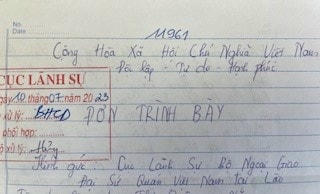 No.
Date
11961
Cộng Hòa Xã Hội Chủ Nghĩa Việt Nam
Độc lập - Tự do - Hạnh phúc
CỤC LÃNH SỰ
ngày 10 tháng 07 năm 2023
xử lý: BHCD
ĐƠN TRÌNH BÀY
phối hợp:
xử lý:
Kính gửi: Cục Lãnh Sự Bộ Ngoại Giao
Đại Sứ Quán Việt Nam tại Lào